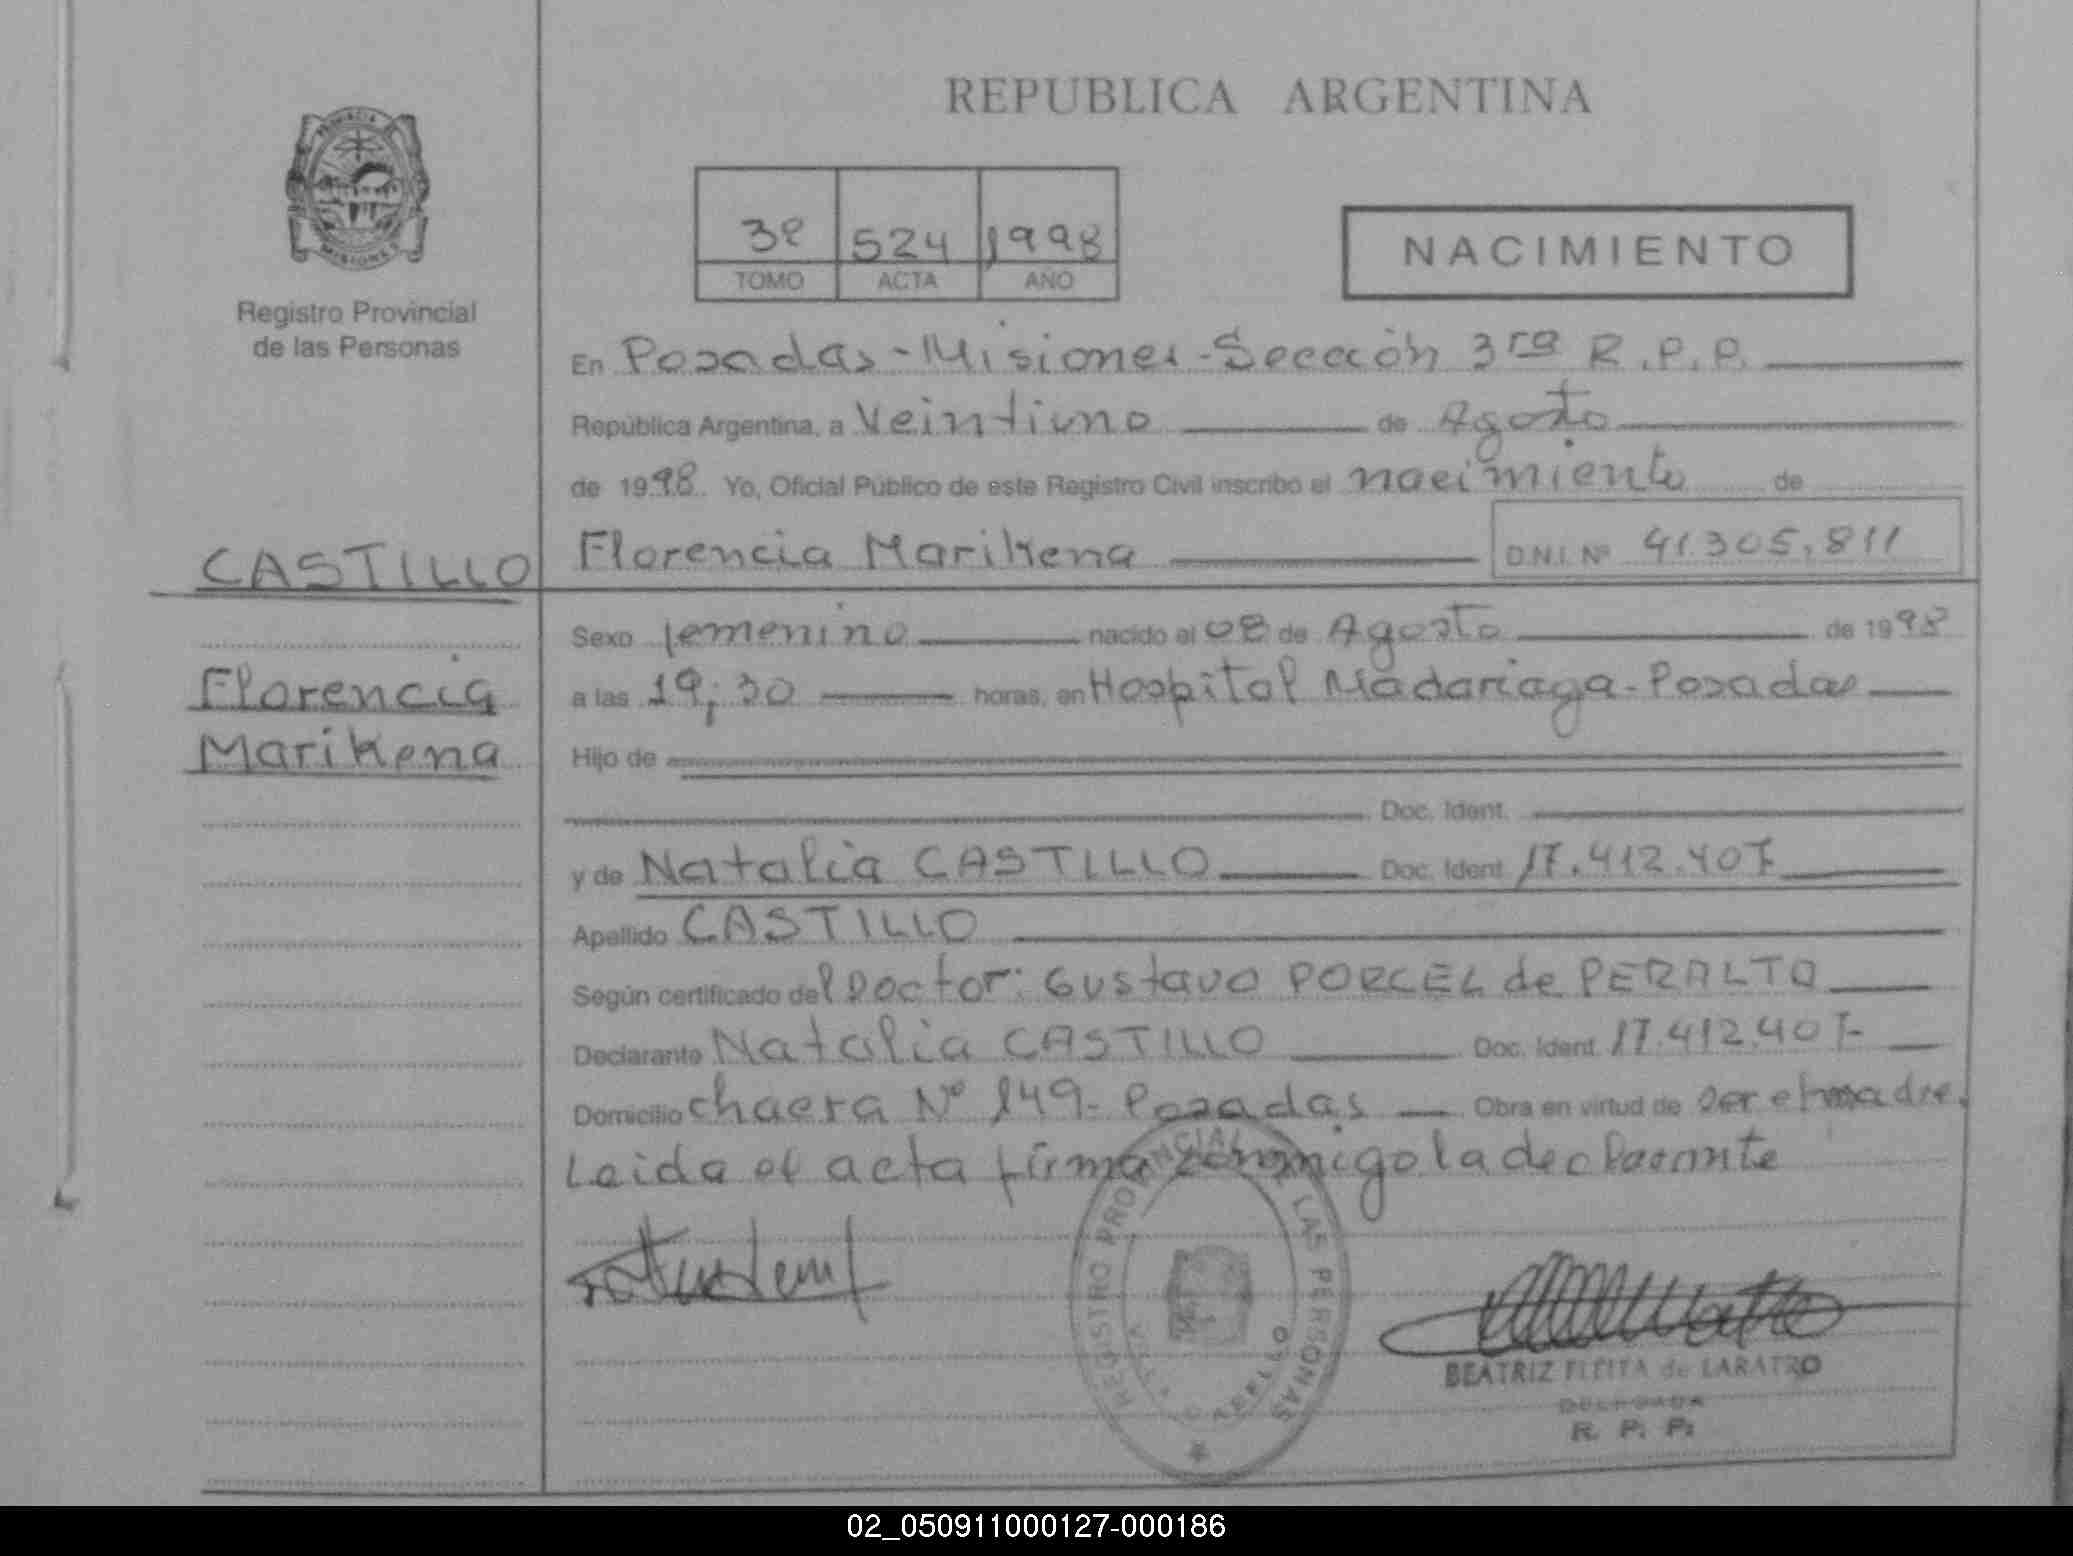 REPUBLICA ARGENTINA
PROVINCIA DE
MISIONES
Registro Provincial
de las Personas
3º 524 1998
TOMO ACTA AÑO
NACIMIENTO
En Posadas - Misiones - Sección 3ra R.P.P.
República Argentina, a Veintiuno de Agosto
de 1998. Yo, Oficial Público de este Registro Civil inscribo el nacimiento de
CASTILLO
Florencia Marikena D.N.I. Nº 41.305.811
Sexo femenino nacido el 08 de Agosto de 1998
Florencia
Marikena
a las 19;30 horas, en Hospital Madariaga - Posadas
Hijo de
Doc. Ident.
y de Natalia CASTILLO Doc. Ident. 17.412.407
Apellido CASTILLO
Según certificado del Doctor: Gustavo PORCEL de PERALTA
Declarante Natalia CASTILLO Doc. Ident. 17.412.407
Domicilio chacra Nº 149 - Posadas Obra en virtud de ser el madre.
Leida el acta firma conmigo la declarante
REGISTRO PROVINCIAL DE LAS PERSONAS
BEATRIZ FLEITA de LARATRO
DELEGADA
R. P. P.
02_050911000127-000186